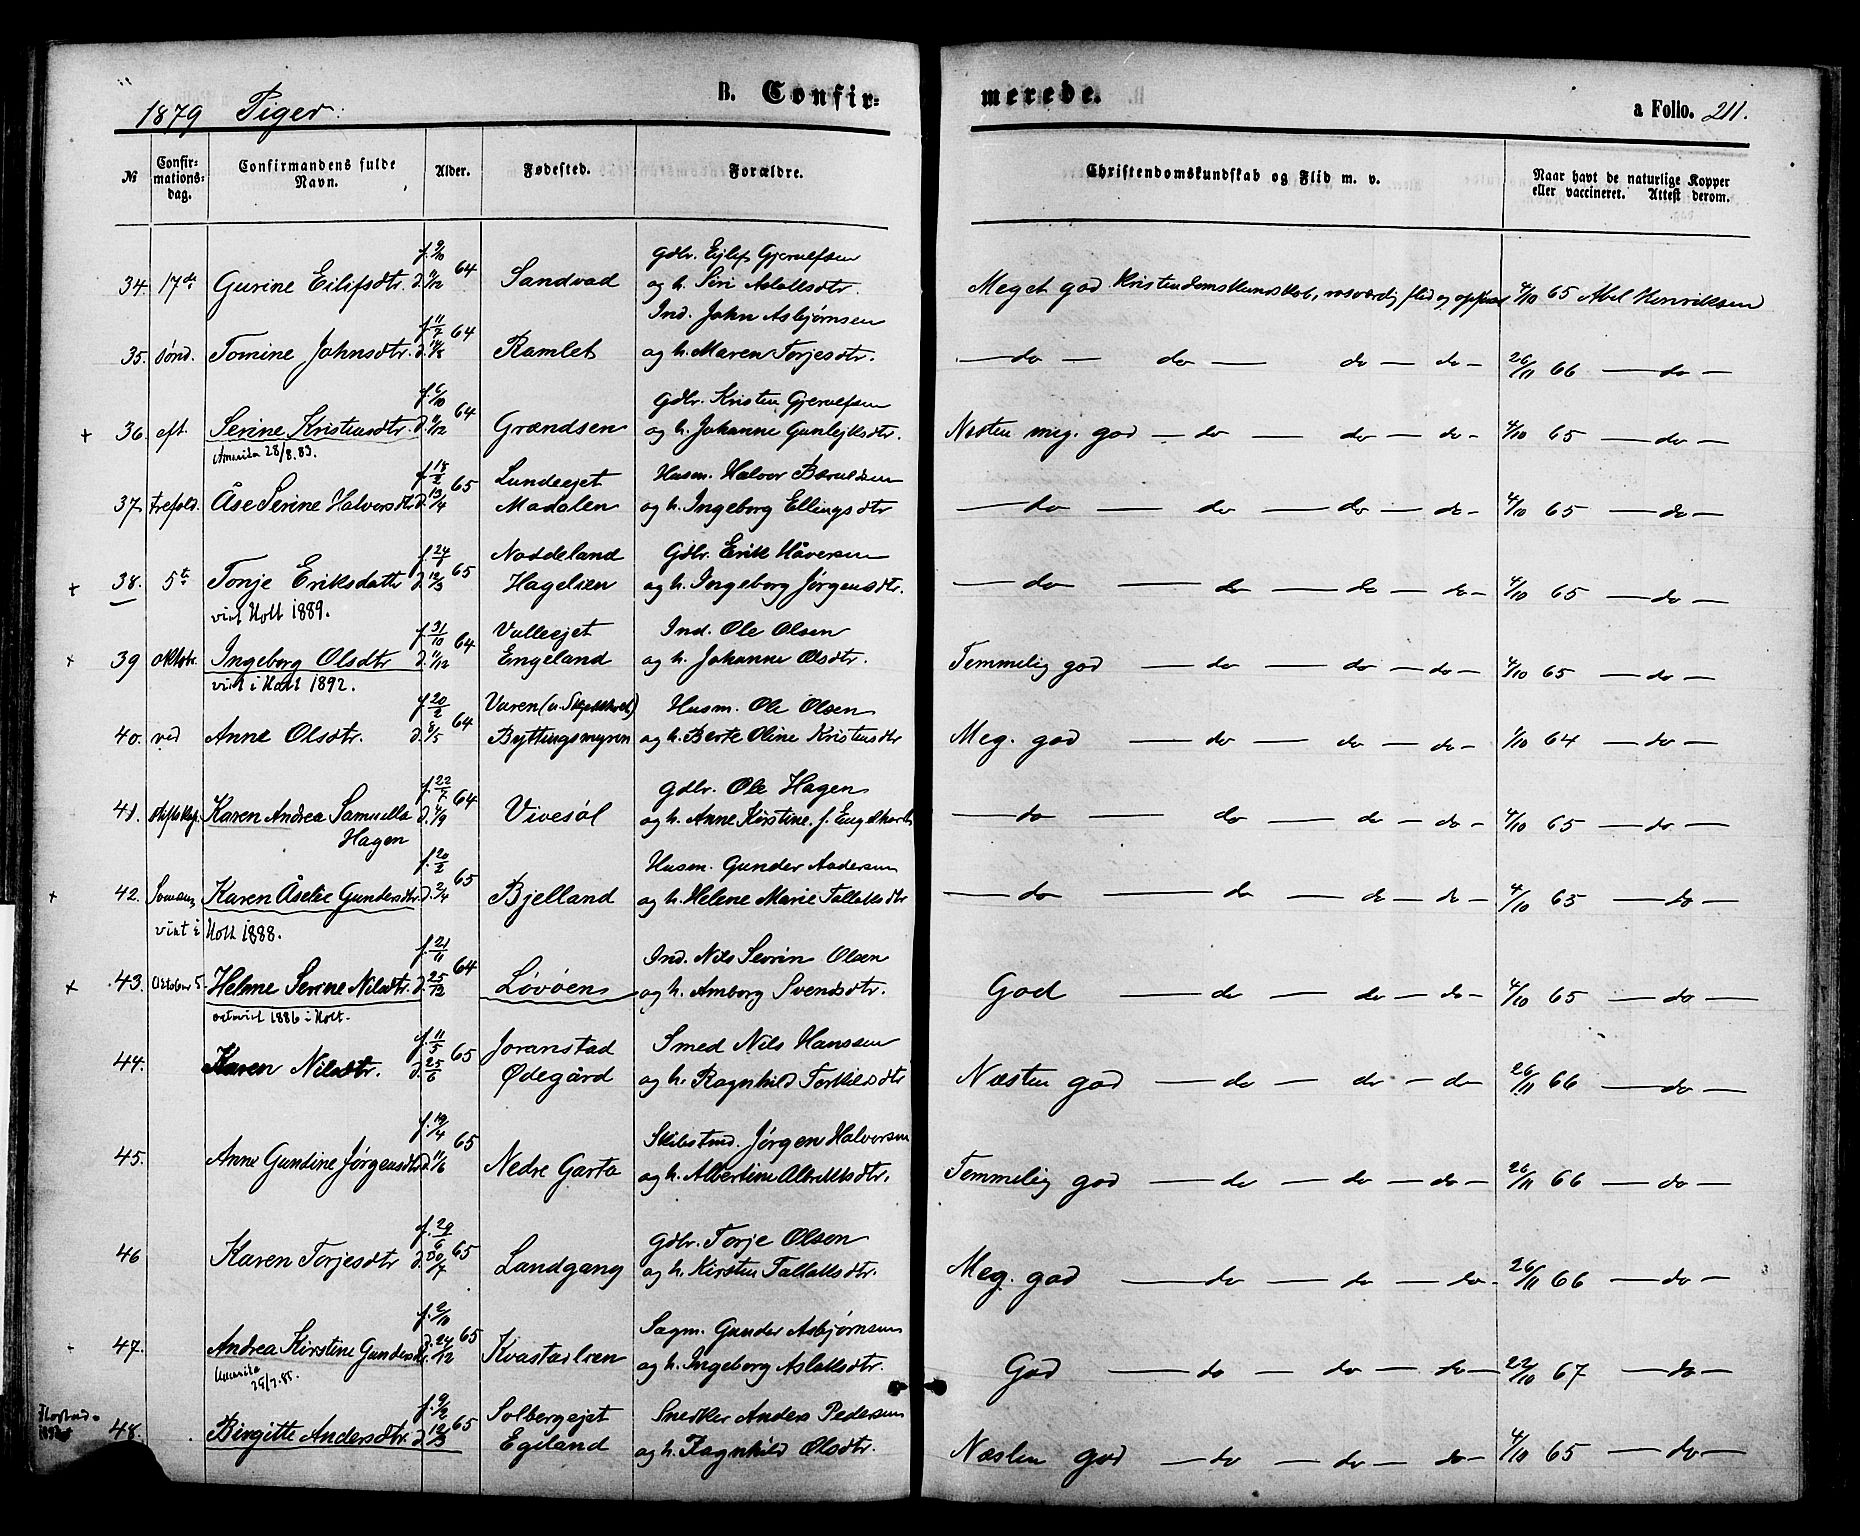 1879 Piger:
B. Confirmerede.
a Folio. 211.
№ Confirmationsdag. Confirmandens fulde Navn. Alder. Fødested. Forældre. Christendomskundskab og Flid m. v. Naar havt de naturlige Kopper eller vaccineret. Attest derom.
f. 9/10 gdbr. Eilef Gjerulfsen
34. 17de Gurine Eilifsdtr. d. 11/12 64 Sandvad og h. Siri Aslaksdtr Meget god Kristendomskundskab, rosværdig flid og opførsel 4/10 65 Abel Henriksen
f. 11/7 Ind. John Asbjørnsen
35. Sønd. Tomine Johnsdtr. d. 14/8 64 Ramlet og h. Maren Torjesdtr. — do — do — do — do — 26/11 66 — do —
f. 6/10 gdbr. Kristen Gjerulfsen
+ 36. eft. Serine Kristensdtr. d. 11/12 64 Grændsen og h. Johanne Gunlejksdtr. Næsten meg. god — do — do — do — 4/10 65 — do —
Amerika 28/8.83.
f. 18/2 Lundeejet Husm. Halvor Bæruldsen
37. trefold. Åse Serine Halvorsdtr d. 13/4 65 Madalen og h. Ingeborg Ellingsdtr — do — do — do — do — 4/10 65 — do —
f. 24/1 Noddeland Gdbr. Erik Håversen
+ 38. 5te Tonje Eriksdatter d. 12/3 65 Hagelien og h. Ingeborg Jørgensdtr. — do — do — do — do — 4/10 65 — do —
viet Holt 1889.
f. 31/10 Valleejet Ind. Ole Olsen
+ 39 oktobr. Ingeborg Olsdtr d. 11/12 64 Engeland og h. Johanne Olsdtr. Temmelig god — do — do — do — 4/10 65 — do —
viet i Holt 1892.
f. 20/2 Varen Husm. Ole Olsen
40. ved Anne Olsdtr. d. 8/5 64 Byttingsmyren og h. Berte Oline Kristensdtr Meg. god — do — do — do — 1/10 64 — do —
f. 22/7 gdbr. Ole Hagen
41. Karen Andrea Samuella d. 4/9 64 Vivesøl og h. Anne Kirstine, f. Engelhart — do — do — do — do — 4/10 65 — do —
Hagen
f. 20/2 Husm. Gunder Andersen
+ 42. Karen Åselie Gundersdtr d. 2/4 65 Bjelland og h. Helene Marie Tallaksdtr — do — do — do — do — 4/10 65 — do —
viet i Holt 1888.
f. 21/11 Ind. Nils Sevrin Olsen
+ 43. Oktober 5. Helene Serine Nilsdtr. d. 25/12 64 Løvøens og h. Amborg Svendsdtr. God — do — do — do — 4/10 65 — do —
1886 i Holt.
f. 11/5 Joranstad Smed Nils Hanssen
44. Karen Nilsdtr. d. 25/6 65 Ødegård og h. Ragnhild Torkildsdtr Næsten god — do — do — do 26/11 66 — do —
f. 19/4 Skibstmd. Jørgen Halvorsen
45. Anne Gundine Jørgensdtr d. 11/6 65 Nedre Garta og h. Albertine Albriktsdtr. Temmelig god — do — do — do — 26/11 66 — do —
f. 29/6 gdbr. Torje Olsen
46 Karen Torjesdtr d. 30/7 65 Landgang og h. Kirsten Tallaksdtr. Meg. god — do — do — do — 26/11 66 — do —
f. 2/10 Sagm. Gunder Asbjørnsen
47. Andrea Kirstine Gundersdtr. d. 24/12 65 Kvastadlien og h. Ingeborg Aslaksdtr. God — do — do — do — 22/10 67 — do —
Amerika
29/7.85.
f. 9/2 Solbergejet Snedker Anders Pedersen
48. Birgitte Andersdtr. d. 12/3 65 Egeland og h. Ragnhild Olsdtr. Næsten god — do — do — do — 4/10 65 — do —